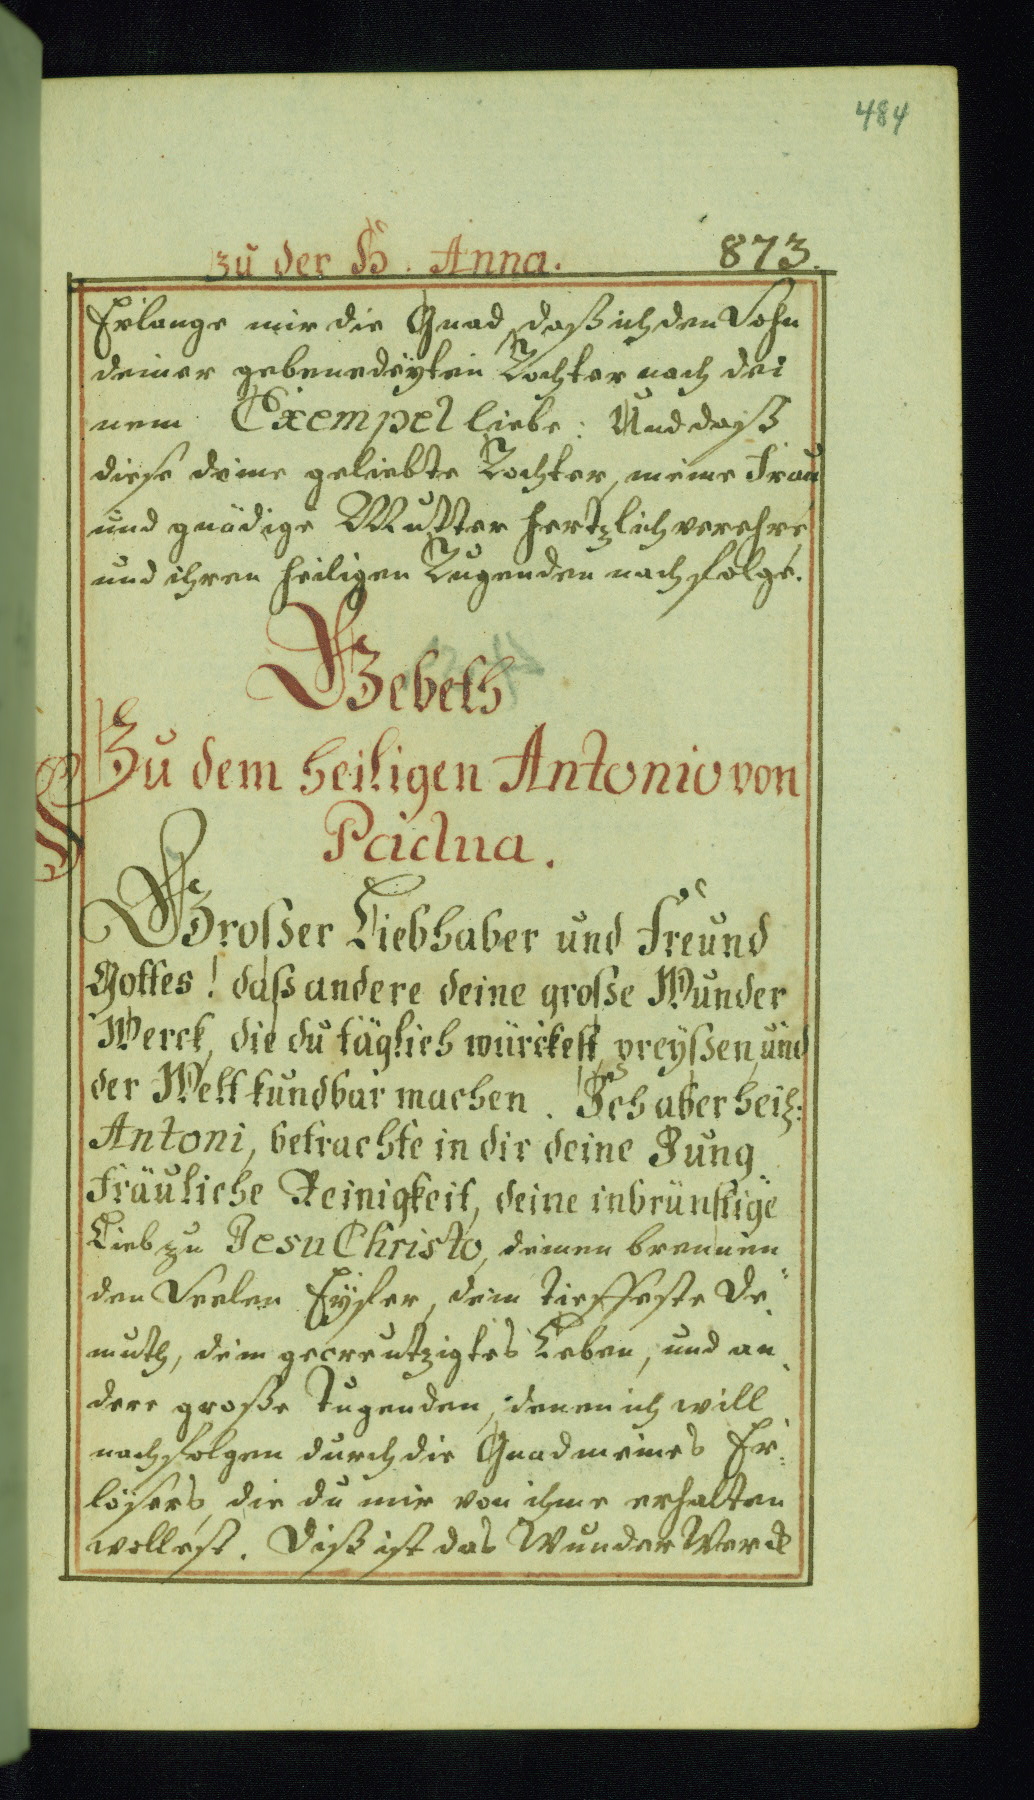 484
zu der H. Anna. 873.
Erlange mir die Gnad, daß ich den Sohn
deiner gebenedeyten Tochter nach dei
nem Exempel liebe: Und daß
diese deine geliebte Tochter, meine Frau
und gnädige Mutter hertzlich verehre,
und ihren heiligen Tugenden nachfolge.
Gebeth
Zu dem heiligen Antonio von
Padua.
Großer Liebhaber und Freund
Gottes! daß andere deine große Wunder
Werck, die du täglich würckest, preyßen, und
der Welt kundbar machen. Ich aber heil:
Antoni, betrachte in dir deine Jung
fräuliche Reinigkeit, deine inbrünstige
Lieb zu Jesu Christo, deinen brennen
den Seelen Eyfer, dein tieffeste De¨
muth, dein gecreutzigtes Leben, und an¨
dere große Tugenden, denen ich will
nachfolgen durch die Gnad meines Er¨
lösers, die du mir von ihme erhalten
wollest. Diß ist das Wunder Werck